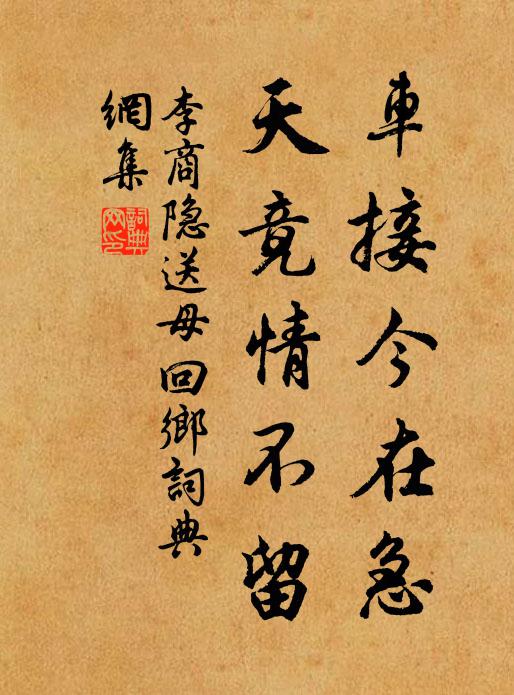 車接今在急
天竟情不留
李商隐送母回鄉詞典
網集
詞典
网印